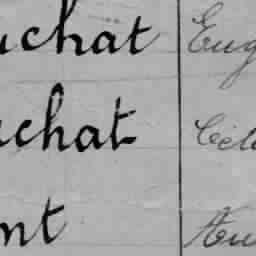 uchat Eug
uchat Cél
nt